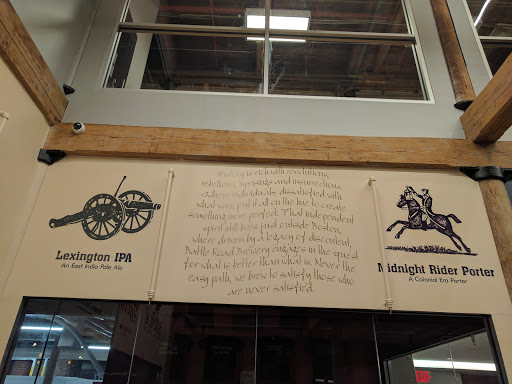 History is rich with revolutions,
rebellions, uprisings and insurrections
where individuals, dissatisfied with
what was, put it all on the line to create
something more perfect. That independent
spirit still lives just outside Boston,
where driven by a legacy of discontent,
Battle Road Brewery engages in the quest
for what is better than what is. Never the
easy path, we brew to satisfy those who
are never satisfied.
Lexington IPA
An East India Pale Ale
Midnight Rider Porter
A Colonial Era Porter
EXIT